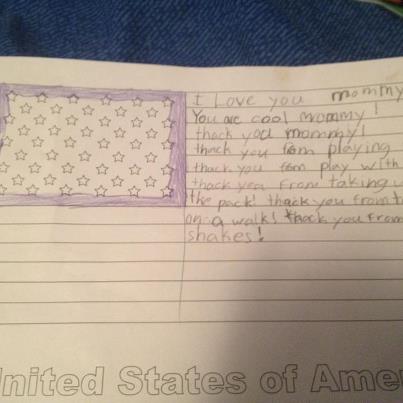 I Love you mommy
You are cool mommy!
thack you mommy!
thack you from playing
thack you from play with
thack you from taking u
the pack! thack you from t
on a walk! thack you from
shakes!
United States of Amer